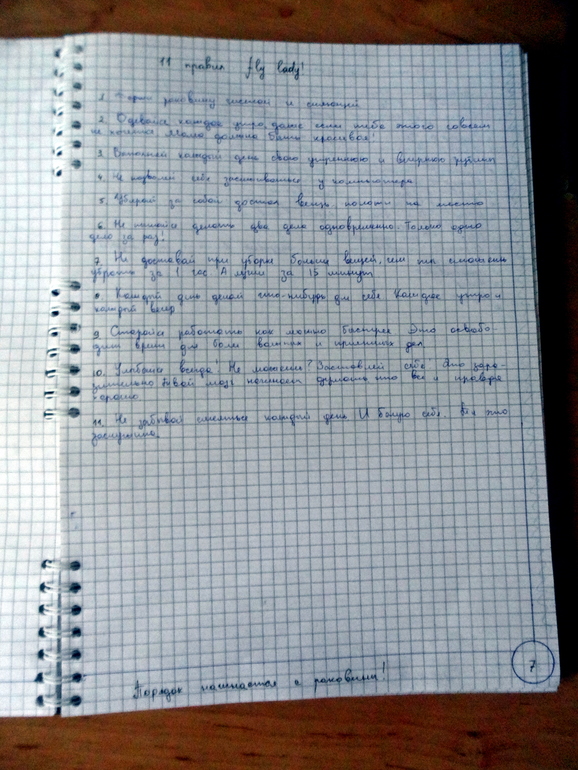 11 правил fly lady!
1. Держи раковину чистой и сияющей
2. Одевайся каждое утро, даже если тебе этого совсем
не хочется. Мама должна быть красивой!
3. Выполняй каждый день свою утреннюю и вечернюю рутины
4. Не позволяй себе засиживаться у компьютера
5. Убирай за собой. достал вещь положи на место
6. Не пытайся делать два дела одновременно. Только одно
дело за раз!
7. Не доставай при уборке больше вещей, чем ты сможешь
убрать за 1 час. А лучше за 15 минут
8. Каждый день делай что-нибудь для себя Каждое утро и
каждый вечер
9. Старайся работать как можно быстрее Это освобо-
дит время для более важных и приятных дел
10. Улыбайся всегда. Не можешь? Заставляй себя Это зара-
зительно твой мозг начинает думать что все и правда
хорошо
11. Не забывай смеяться каждый день И балуй себя. Ты это
заслужила.
Порядок начинается с раковины!
7